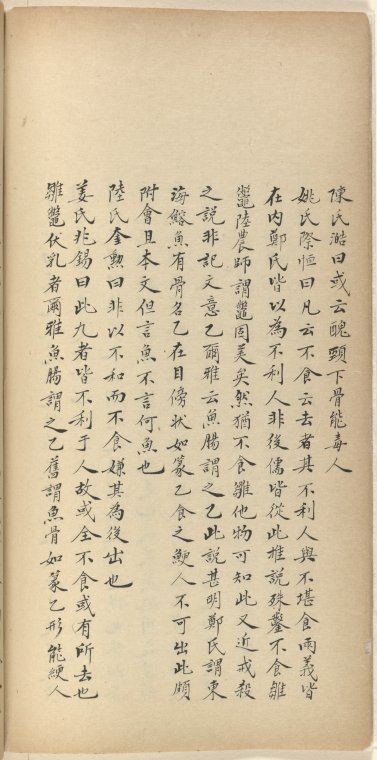 陳氏澔曰或云醜頸下骨能毒人
姚氏際恒曰凡云不食云去者其不利人與不堪食兩義皆
在内鄭氏皆以為不利人非後儒皆從此推說殊鑿不食雛
鼈陸農師謂鼈固美矣然猶不食雛他物可知此又近戒殺
之說非記文意乙爾雅云魚腸謂之乙此說甚明鄭氏謂東
海鰫魚有骨名乙在目傍狀如篆乙食之鯁人不可出此頗
附會且本文但言魚不言何魚也
陸氏奎勲曰非以不和而不食嫌其為後出也
姜氏兆錫曰此九者皆不利于人故或全不食或有所去也
雛鼈伏乳者爾雅魚腸謂之乙舊謂魚骨如篆乙形能鯁人